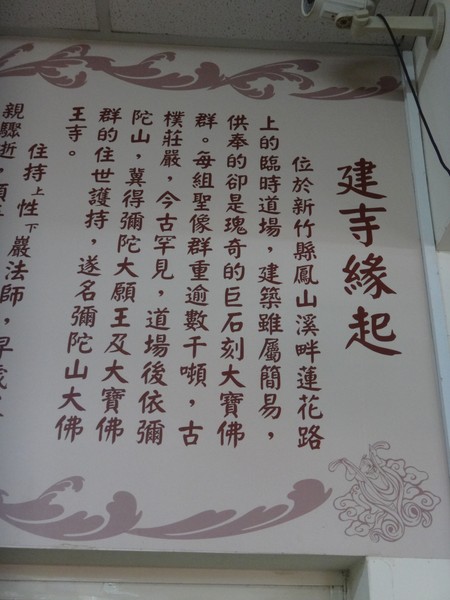 建寺緣起
位於新竹縣鳳山溪畔蓮花路
上的臨時道場，建築雖屬簡易，
供奉的卻是瑰奇的巨石刻大寶佛
群。每組聖像群重逾數千噸，古
樸莊嚴，今古罕見，道場後依彌
陀山，冀得彌陀大願王及大寶佛
群的住世護持，遂名彌陀山大佛
王寺。
住持上性下巖法師，早歲
親驟逝，頓